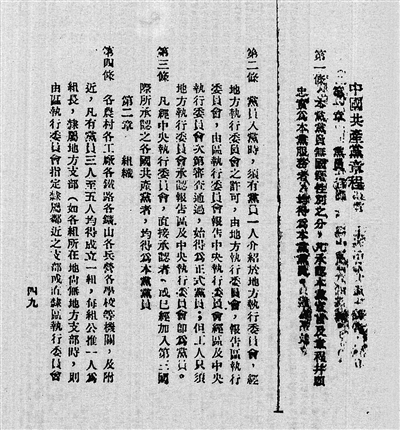 中國共產黨章程
第一章 黨員
第一條 本黨黨員無國籍性別之分,凡承認本黨宣言及章程并願
忠實爲本黨服務者,均得爲本黨黨員。
第二條 黨員入黨時,須有黨員一人介紹於地方執行委員會,經
地方執行委員會之許可,由地方執行委員會,報告區執行
委員會,由區執行委員會報告中央執行委員會經區及中央
執行委員會次第審查通過,始得爲正式黨員;但工人只須
地方執行委員會承認報告區及中央執行委員會即爲黨員。
第三條 凡經中央執行委員會,直接承認者、或已經加入第三國
際所承認之各國共產黨者,均得爲本黨黨員
第二章 組織
第四條 各農村各工廠各鐵路各鑛山各兵營各學校等機關,及附
近,凡有黨員三人至五人均得成立一組,每組公推一人爲
組長,隸屬地方支部(如各組所在地尙無地方支部時,則
由區執行委員會指定隸屬鄰近之支部或直隸區執行委員會
四九